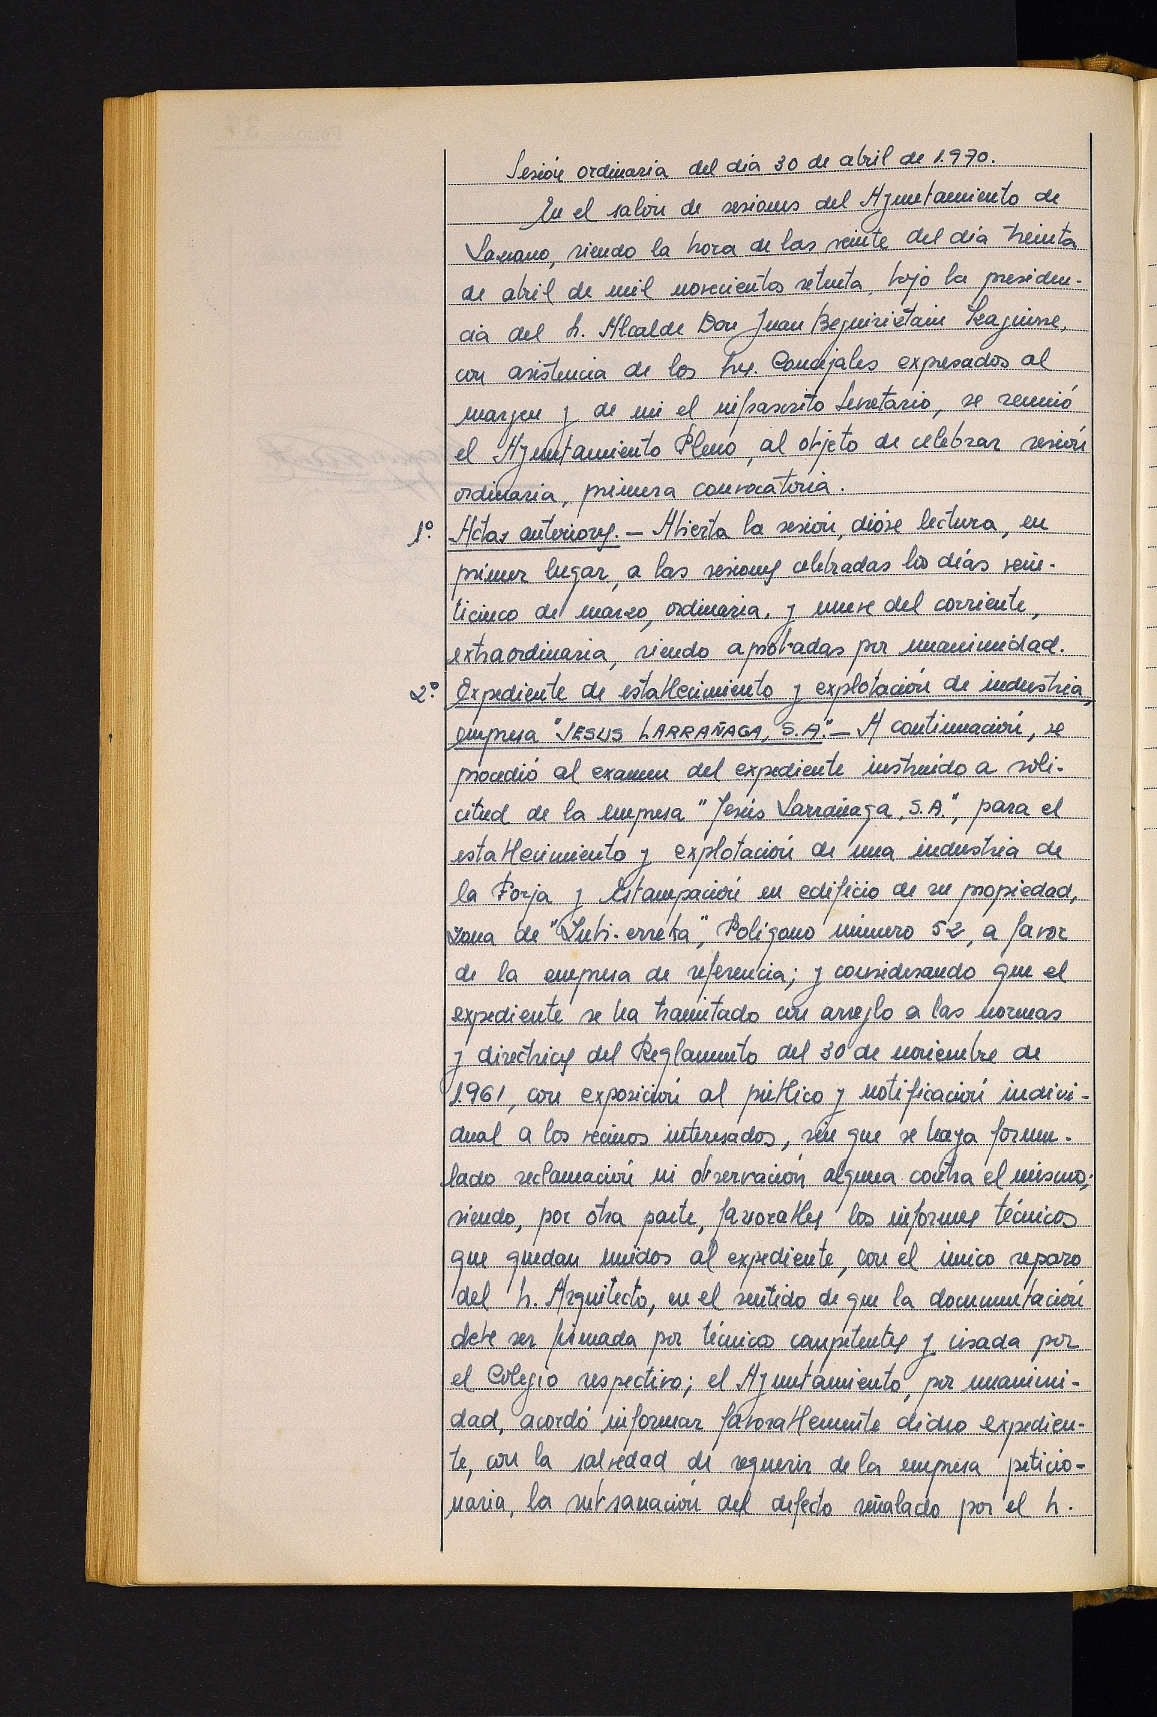 Sesión ordinaria del día 30 de abril de 1.970.
En el salón de sesiones del Ayuntamiento de
Lazcano, siendo la hora de las veinte del día treinta
de abril de mil novecientos setenta, bajo la presiden-
cia del Sr. Alcalde Don Juan Beguiristain
con asistencia de los Sres. Concejales expresados al
margen y de mi el infrascrito Secretario, se reunió
el Ayuntamiento Pleno, al objeto de celebrar sesión
ordinaria, primera convocatoria.
1º. Actas anteriores. — Abierta la sesión, dióse lectura, en
primer lugar, a las sesiones celebradas los días vein-
ticinco de marzo, ordinaria, y nueve del corriente,
extraordinaria, siendo aprobadas por unanimidad.
2º. Expediente de establecimiento y explotación de industria,
empresa "JESUS LARRAÑAGA, S.A." — A continuación, se
procedió al examen del expediente instruído a soli-
citud de la empresa "Jesús Larrañaga, S.A.", para el
establecimiento y explotación de una industria de
la Forja y Estampación en edificio de su propiedad,
zona de "Zubi-erreka", Polígono número 52, a favor
de la empresa de referencia; y considerando que el
expediente se ha tramitado con arreglo a las normas
y directrices del Reglamento del 30 de noviembre de
1.961, con exposición al público y notificación indivi-
dual a los vecinos interesados, sin que se haya formu-
lado reclamación ni observación alguna contra el mismo;
siendo, por otra parte, favorables los informes técnicos
que quedan unidos al expediente, con el único reparo
del Sr. Arquitecto, en el sentido de que la documentación
debe ser firmada por técnicos competentes y visada por
el Colegio respectivo; el Ayuntamiento, por unanimi-
dad, acordó informar favorablemente dicho expedien-
te, con la salvedad de requerir de la empresa peticio-
naria, la subsanación del defecto señalado por el Sr.